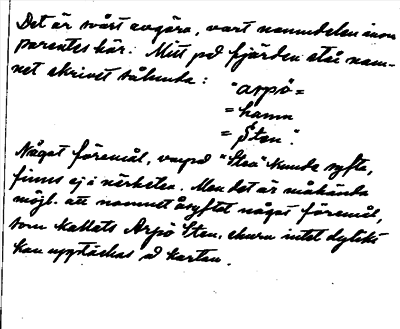 Det är svårt avgöra, vart namndelen inom
parentes hör. Mitt på fjärden står nam-
net skrivet sålunda:
"Arpö=
=hamn
=Sten".
Något föremål, varpå "Sten" kunde syfta,
finns ej i närheten. Men det är måhända
möjl. att namnet åsyftat något föremål,
som kallats Arpö Sten, ehuru intet dylikt
kan upptäckas å kartan.